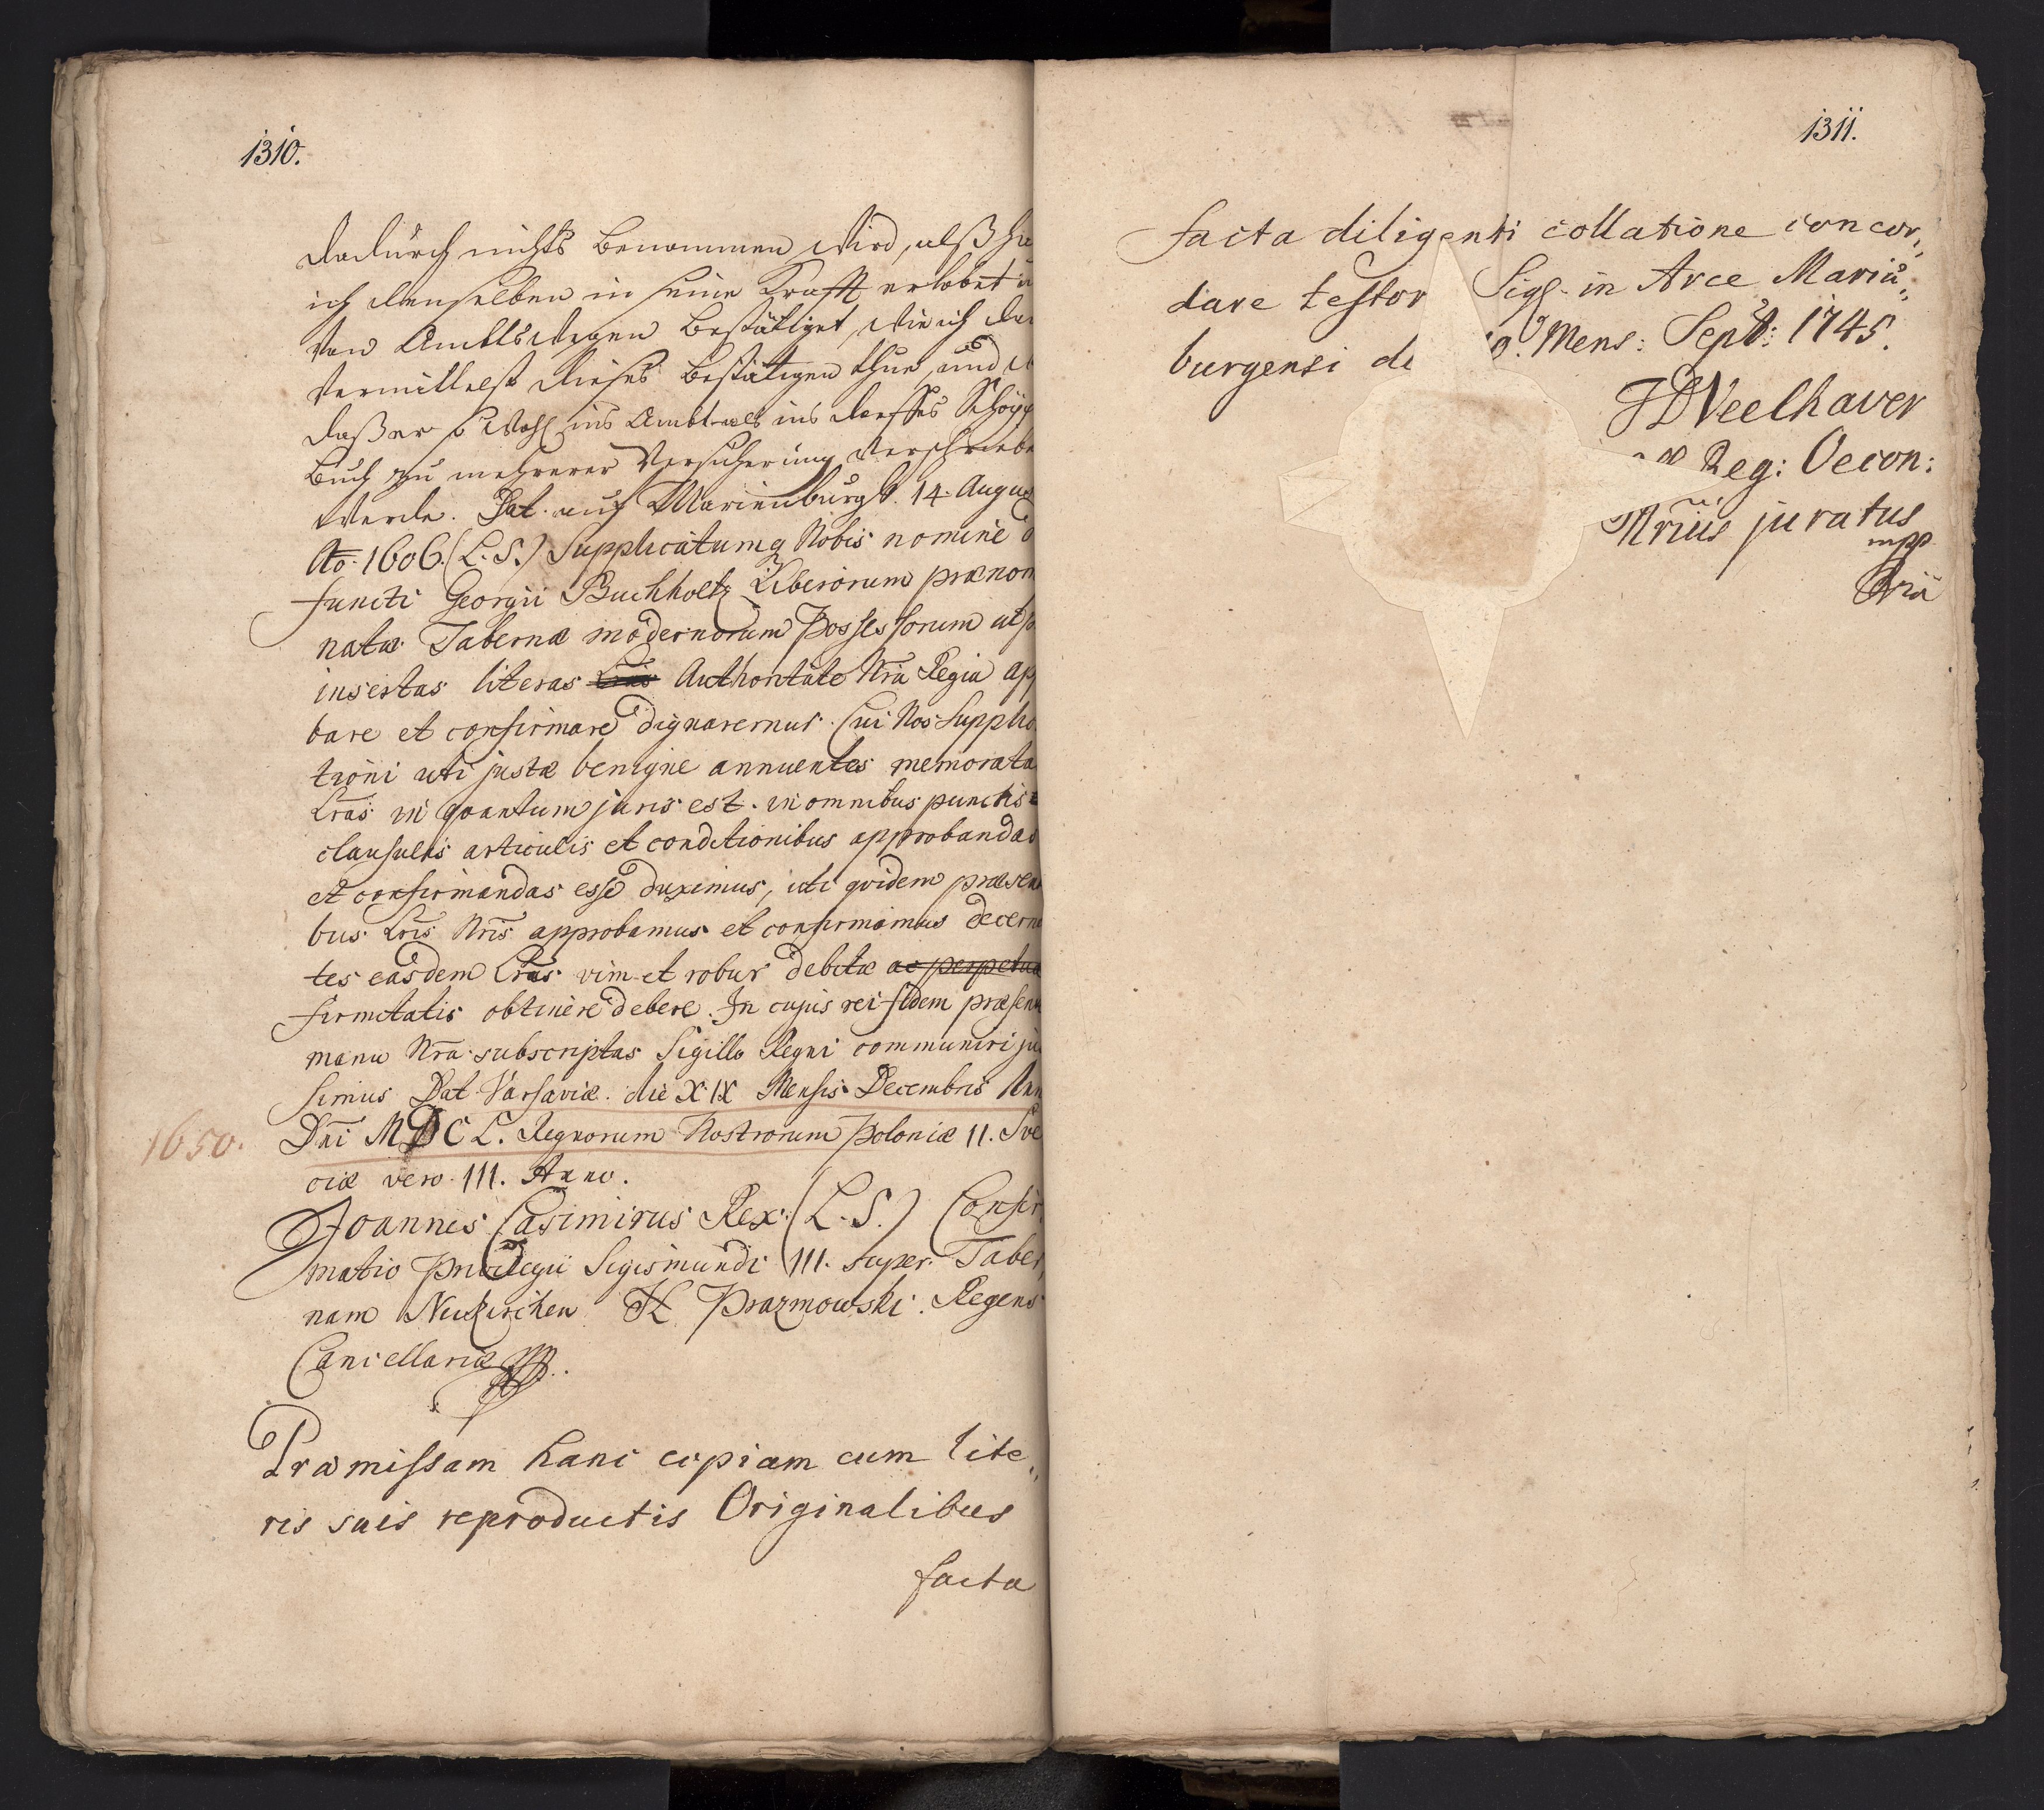 1310.
dadurch nichts benommen wird, alß ha
ich denselben in seine Krafft erlobet
von Ambtswegen bestätiget, wie ich da
vermittelst dieses bestätigen thue, und
daß er so wohl ins Ambt als ins dorffes Schöpp
buch zu mehrerer Versicherung verschriebe
werde. Dat. auf Marienburg d. 14. Augus
Ao. 1606. (L. S.) Supplicatumq Nobis nomine
functi Georgii Buchholtz Liberorum prænom
natæ Tabernæ modernorum Possessorum ut p
insertas literas Authoritate Nra Regia ap
bare et confirmare dignaremur. Cui Nos Supplica
tioni uti justæ benigne annuentes memorata
Lras in quantum juris est. in omnibus punctis
clausulis articulis et conditionibus approbandas
et confirmandas esse duximus, uti quidem præsen
bus Lris Nris approbamus et confirmamus decern
tes easdem Lras vim et robur debitæ ac perpetuæ
firmitatis obtinere debere. In cujus rei fidem præsen
manu Nra subscriptas Sigillo Regni communiri ju
simus Dat Varsaviæ die XIX Mensis Decembris Ann
1650. Dni MDCL. Regnorum Nostrorum Poloniæ II. Sve
ciæ vero III. Anno.
Joannes Casimirus Rex (L. S.) Confir
matio Privilegii Sigismundi III. super Taber
nam Neukirchen Prazmowski Regens
Cancellariæ
Præmissam hanc copiam cum lite„
ris suis reproductis Originalibus
facta
1311.
facta diligenti collatione concor„
dare testor Sigl. in Arce Mariæ„
burgensi d Mens: Sept: 1745.
JDVeelhaver
Reg: Oecon:
Nrius juratus
mpp